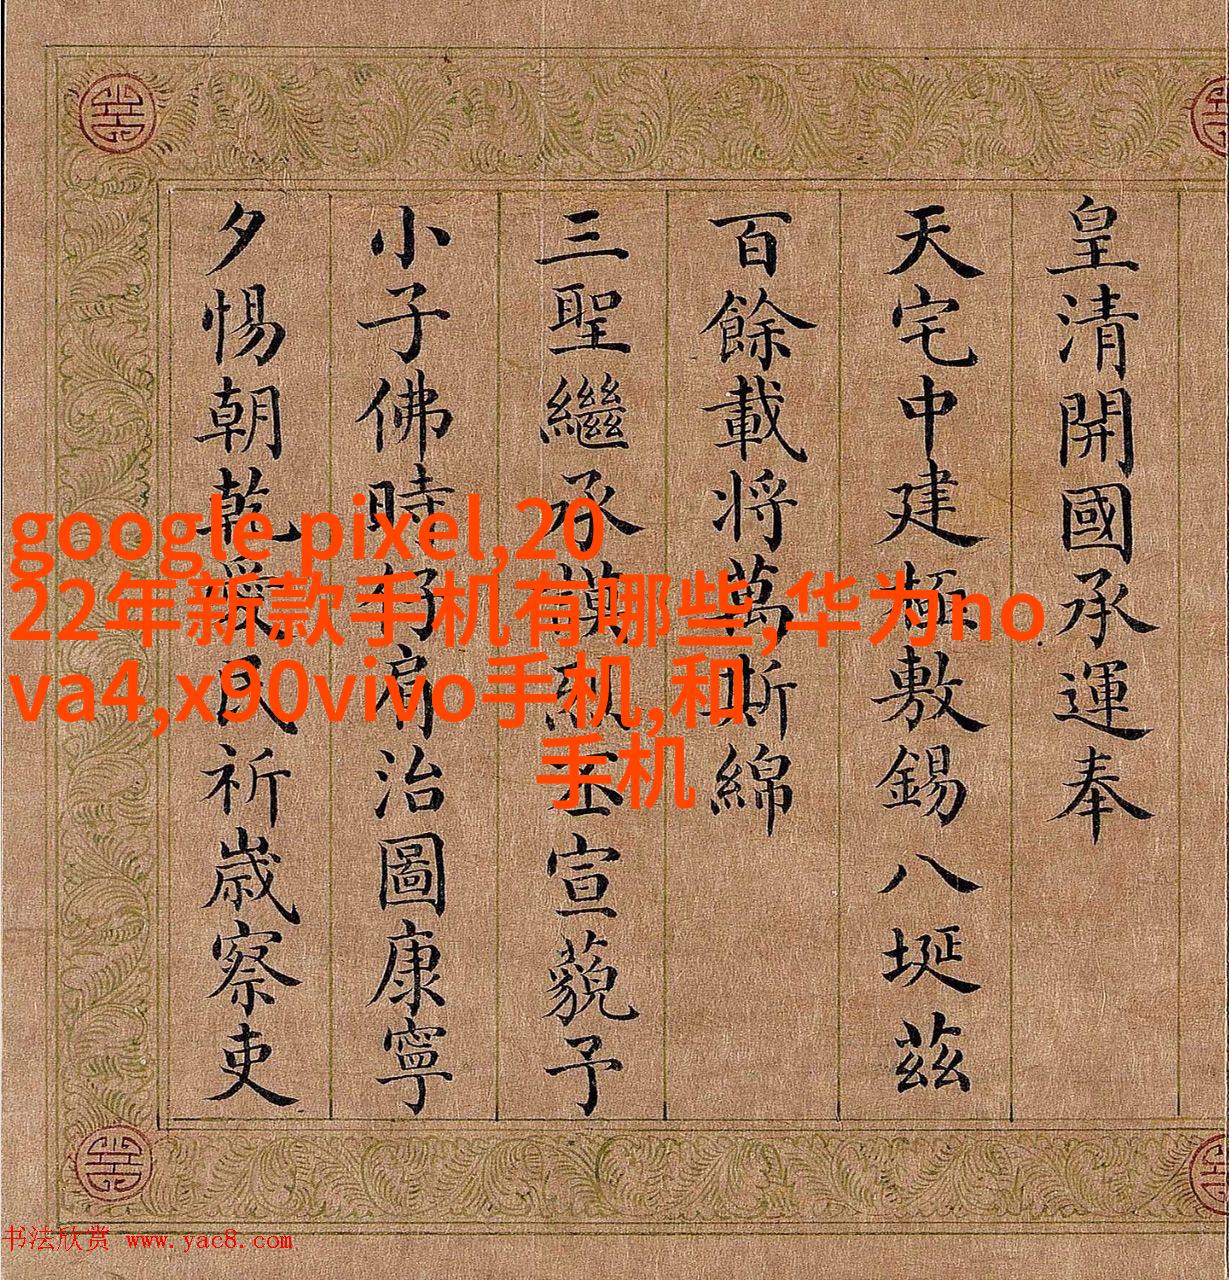 皇清開國承運奉
天宅中建極敷錫八埏茲
百餘載將萬斯綿
三聖繼承謨烈丕宣藐予
小子佛時仔肩治圖康寧
夕惕朝乾愛民祈歲察吏
google pixel,20
22年新款手机有哪些,华为no
va4,x90vivo手机,和
手机
书法欣赏 www.yac8.com